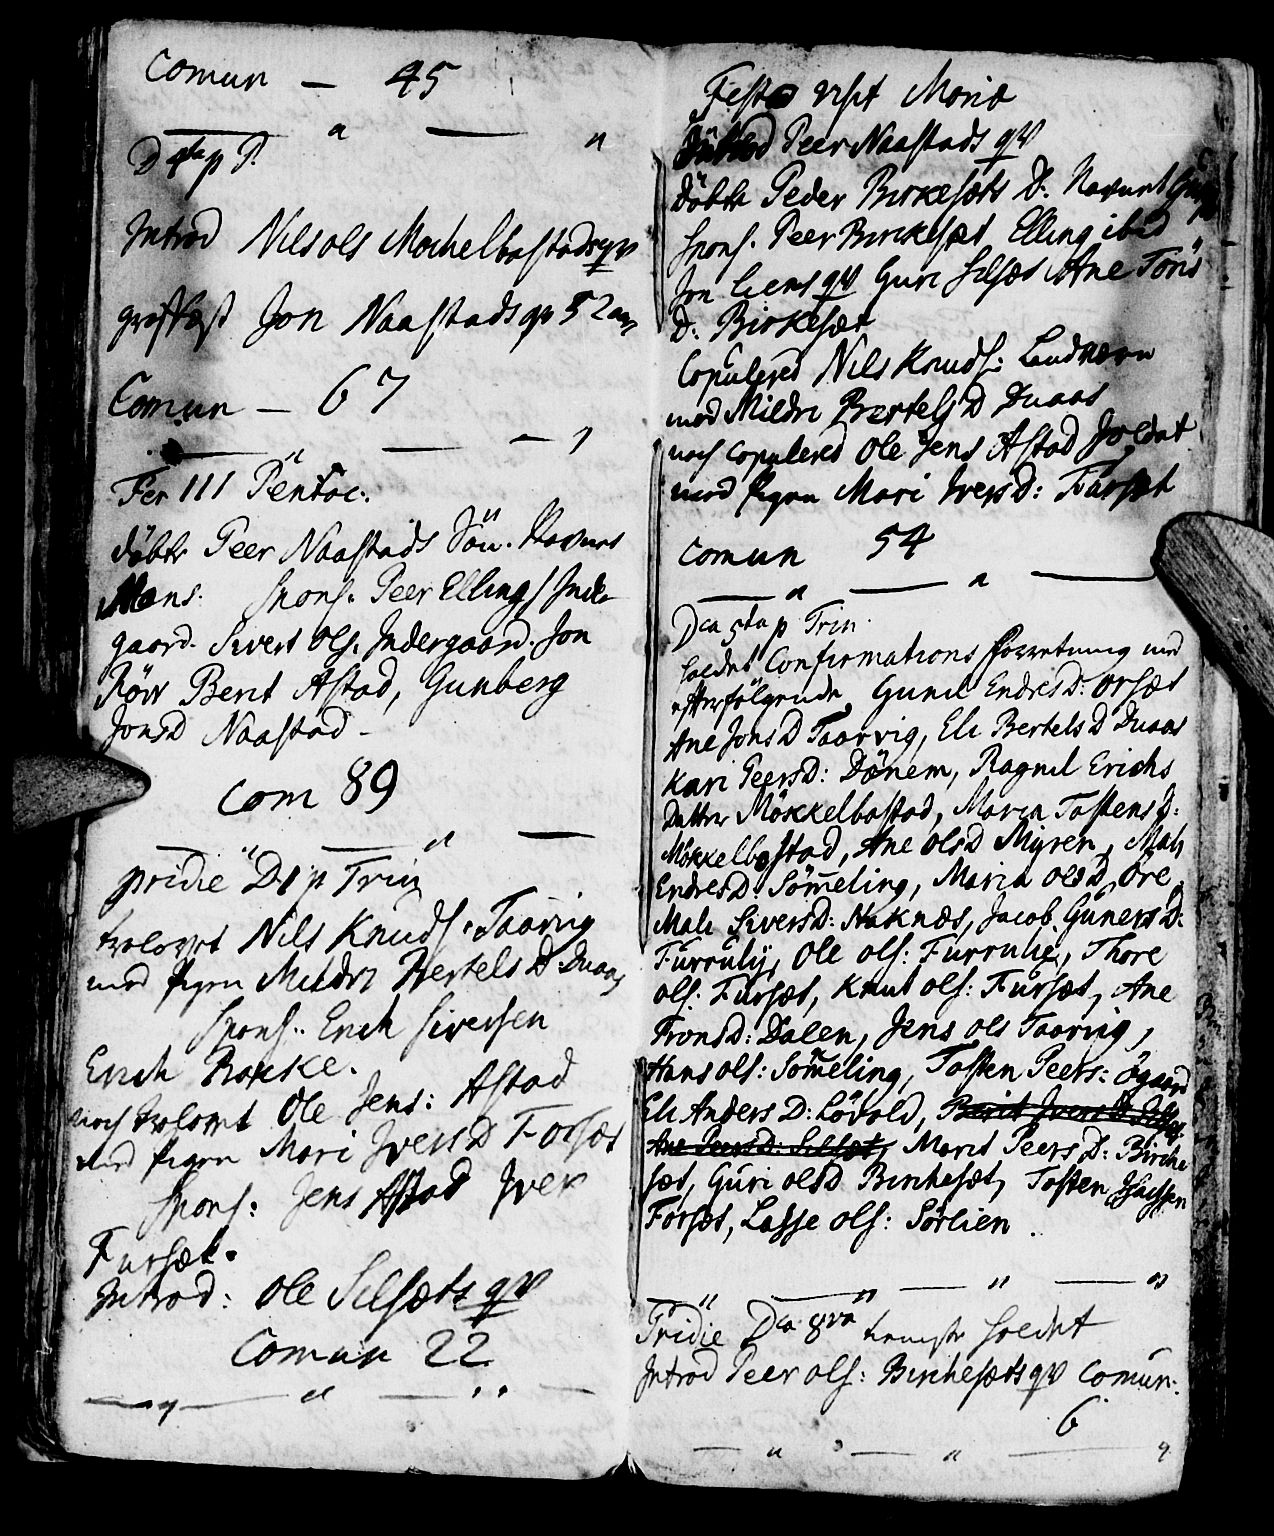 Comun — 45
D 4ta p P.
Introd Nils ols Mochelbostads qv
grafkast Jon Naastads qv 52 aar
Comun — 67
Fer III Pentec:
döbte Peer Naastads Sön. Navnet
Mons: Spons. Peer Ellings Inder
gaard. Sivert Ols. Indergaard. Jon
Röw Berit Astad, Gunberg
JonsD Naastad -
Com 89
pridie D 1 p Trin
trolovet Nils Knuds: Taarvig
med Pigen Mildri Bertels D Duaas
Spons: Erich Siversen
Erich Boxke.
noch trolovet Ole Jens: Astad
med Pigen Mari Ivers D Forset
Spons: Jens Astad Iver
Furset.
Introd: Ole Silsæts qv
Comun 22
Festo visit Mariæ
Peer Naastads qv
döbte Peder Birkesæts D: Navnet
Spons. Peer Birckesæt Elling ibid
Jon Liens qv Guri Silsæt Ane Töris
D: Birkesæt
Copulered Nils Knuds: Landværn
med Mildri Bertels D Duaas
noch copulered Ole Jens Astad Soldat
med Pigen Mari IversD: Farset
Comun 54
Dca 5ta p Trin.
holdet Confirmations forretning med
efterfölgende Gunil EndresD: Orsæt
Ane Jons D Taarvig, Eli Bertels D Duaas
Kari PeersD: Dönem, Ragnil Erichs
Datter Möxkelbostad, Maria Tostens D:
Möxkelbostad, Ane olsD Myren, Mali
EndresD: Sömeling, Maria ols D, Öre
Mali SiversD: Naknæs, Jacob Guners D:
Furruly, Ole ols: Furrulie, Thore
ols: Fursæt, Knut ols: Fursæt, Ane
TronsD: Dalen, Jens ols Taarvig,
Hans ols: Sömeling, Tosten Peers: Ögaard
Eli Anders D: Lövold, Berit Ivers D Silset
Ane PeersD: Silsæt, Marit Peers D: Birche
sæt, Guri olsD Birchesæt, Tosten
Forset, Lasse ols: Sörlien.
Pridie Dca 8va holdet
Introd Peer ols: Birchesæts qv Comun:
6